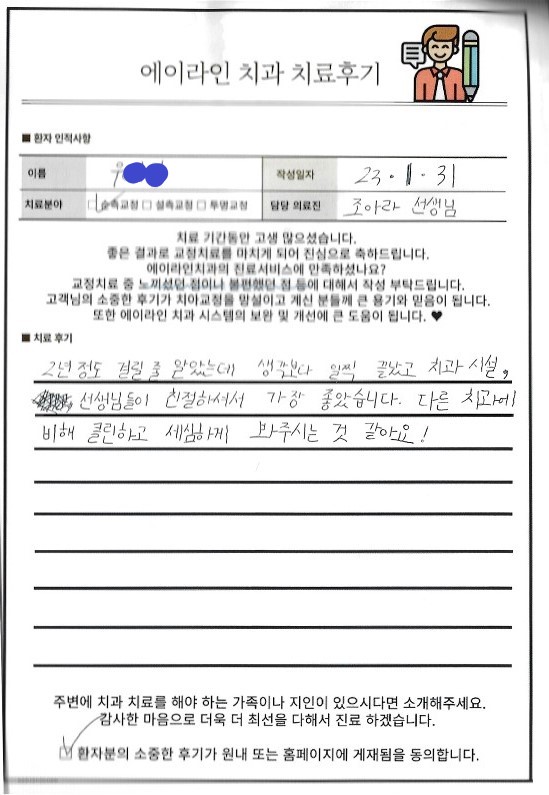 에이라인 치과 치료후기
■ 환자 인적사항
이름 우 작성일자 23. 1. 31
치료분야 □ 순측교정 □ 설측교정 □ 투명교정 담당 의료진 조아라 선생님
치료 기간동안 고생 많으셨습니다.
좋은 결과로 교정치료를 마치게 되어 진심으로 축하드립니다.
에이라인치과의 진료서비스에 만족하셨나요?
교정치료 중 느끼셨던 점이나 불편했던 점 등에 대해서 작성 부탁드립니다.
고객님의 소중한 후기가 치아교정을 망설이고 계신 분들께 큰 용기와 믿음이 됩니다.
또한 에이라인 치과 시스템의 보완 및 개선에 큰 도움이 됩니다. ♥
■ 치료 후기
2년 정도 걸릴 줄 알았는데 생각보다 일찍 끝났고 치과 시설,
선생님들이 친절하셔서 가장 좋았습니다. 다른 치과에
비해 클린하고 세심하게 봐주시는 것 같아요!
주변에 치과 치료를 해야 하는 가족이나 지인이 있으시다면 소개해주세요.
감사한 마음으로 더욱 더 최선을 다해서 진료 하겠습니다.
□ 환자분의 소중한 후기가 원내 또는 홈페이지에 게재됨을 동의합니다.